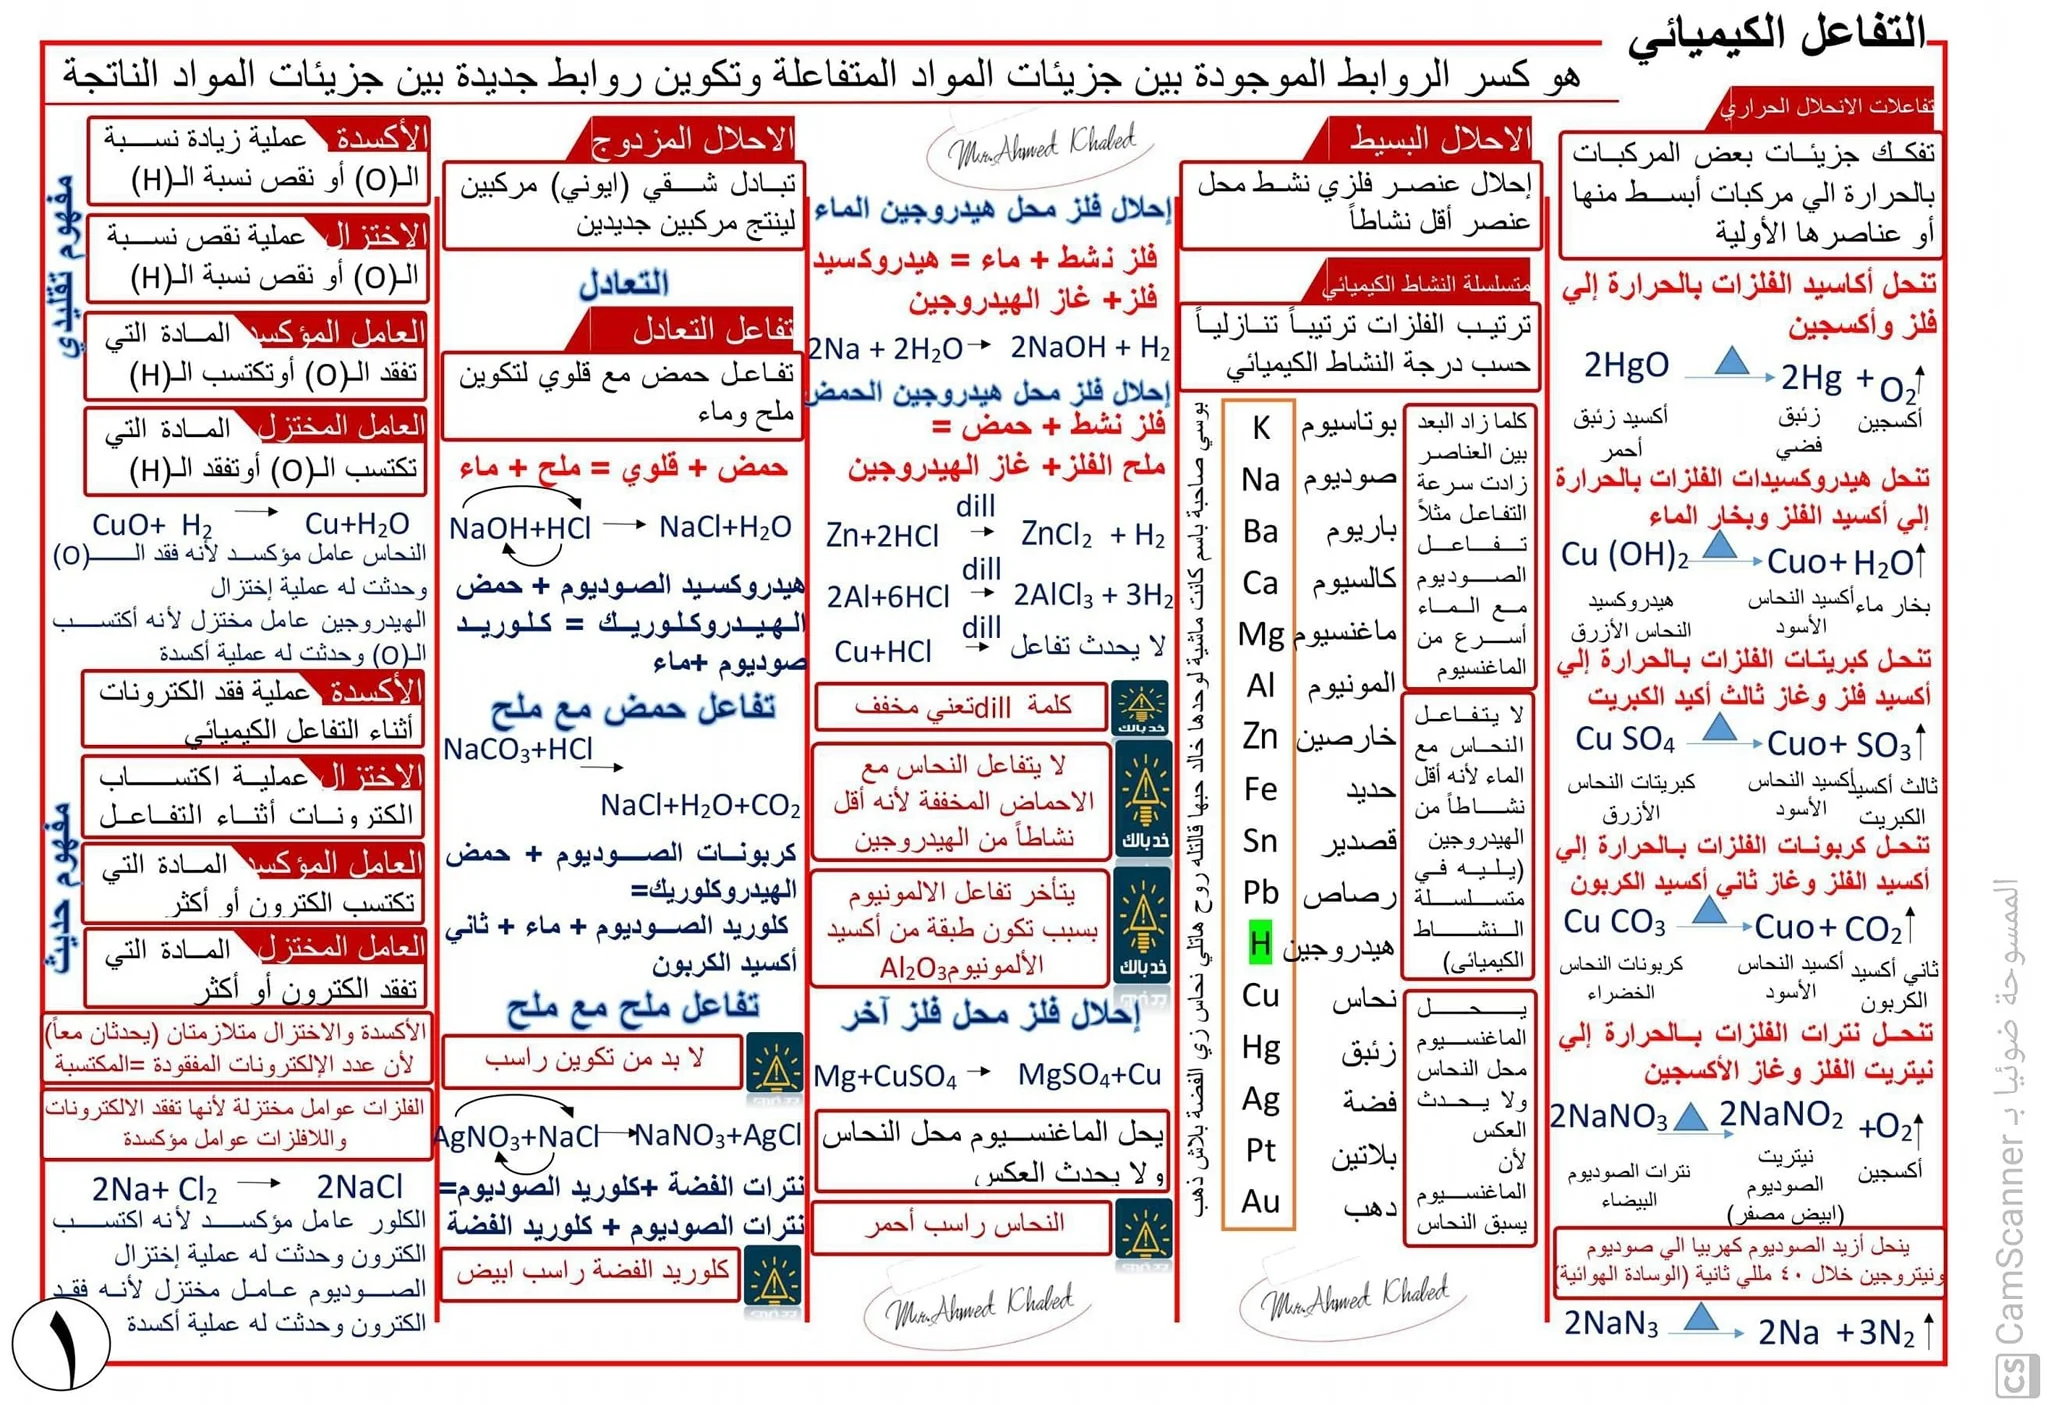 التفاعل الكيميائي
هو كسر الروابط الموجودة بين جزيئات المواد المتفاعلة وتكوين روابط جديدة بين جزيئات المواد الناتجة
تفاعلات الانحلال الحراري
تفكك جزيئات بعض المركبات
بالحرارة الي مركبات أبسط منها
أو عناصرها الأولية
تنحل أكاسيد الفلزات بالحرارة إلي
فلز وأكسجين
2HgO → 2Hg + O₂↑
أكسيد زئبق أحمر
زئبق فضي
أكسجين
تنحل هيدروكسيدات الفلزات بالحرارة
إلي أكسيد الفلز وبخار الماء
Cu (OH)₂ → Cuo+ H₂O↑
هيدروكسيد النحاس الأزرق
أكسيد النحاس الأسود
بخار ماء
تنحل كبريتات الفلزات بالحرارة إلي
أكسيد فلز وغاز ثالث أكيد الكبريت
Cu SO₄ → Cuo+ SO₃↑
كبريتات النحاس الأزرق
أكسيد النحاس الأسود
ثالث أكسيد الكبريت
تنحل كربونات الفلزات بالحرارة إلي
أكسيد الفلز وغاز ثاني أكسيد الكربون
Cu CO₃ → Cuo+ CO₂↑
كربونات النحاس الخضراء
أكسيد النحاس الأسود
ثاني أكسيد الكربون
تنحل نترات الفلزات بالحرارة إلي
نيتريت الفلز وغاز الأكسجين
2NaNO₃ → 2NaNO₂ +O₂↑
نترات الصوديوم البيضاء
نيتريت الصوديوم (ابيض مصفر)
أكسجين
ينحل أزيد الصوديوم كهربيا الي صوديوم
ونيتروجين خلال ٤٠ مللي ثانية (الوسادة الهوائية)
2NaN₃ → 2Na +3N₂↑
الاحلال البسيط
إحلال عنصر فلزي نشط محل
عنصر أقل نشاطاً
متسلسلة النشاط الكيميائي
ترتيب الفلزات ترتيباً تنازلياً
حسب درجة النشاط الكيميائي
بوتاسيوم K
صوديوم Na
باريوم Ba
كالسيوم Ca
ماغنسيوم Mg
المونيوم Al
خارصين Zn
حديد Fe
قصدير Sn
رصاص Pb
هيدروجين H
نحاس Cu
زئبق Hg
فضة Ag
بلاتين Pt
دهب Au
كلما زاد البعد
بين العناصر
زادت سرعة
التفاعل مثلاً
تفاعل
الصوديوم
مع الماء
أسرع من
الماغنسيوم
لا يتفاعل
النحاس مع
الماء لأنه أقل
نشاطاً من
الهيدروجين
(يليه في
متسلسلة
النشاط
الكيميائي)
يحل
الماغنسيوم
محل النحاس
ولا يحدث
العكس
لأن
الماغنسيوم
يسبق النحاس
بوسي صاحبة باسم كانت ماشية لوحدها خالد حبها قالتله روح هاتلي نحاس زي الفضة بلاش ذهب
Mr.Ahmed Khaled
Mr.Ahmed Khaled
إحلال فلز محل هيدروجين الماء
فلز نشط + ماء = هيدروكسيد
فلز+ غاز الهيدروجين
2Na + 2H₂O → 2NaOH + H₂
إحلال فلز محل هيدروجين الحمض
فلز نشط + حمض =
ملح الفلز+ غاز الهيدروجين
dill
Zn+2HCl → ZnCl₂ + H₂
dill
2Al+6HCl → 2AlCl₃ + 3H₂
dill
Cu+HCl → لا يحدث تفاعل
كلمة dill تعني مخفف
خد بالك
لا يتفاعل النحاس مع
الاحماض المخففة لأنه أقل
نشاطاً من الهيدروجين
خد بالك
يتأخر تفاعل الالمونيوم
بسبب تكون طبقة من أكسيد
الألمونيوم Al₂O₃
خد بالك
إحلال فلز محل فلز آخر
Mg+CuSO₄ → MgSO₄+Cu
يحل الماغنسيوم محل النحاس
ولا يحدث العكس
النحاس راسب أحمر
Mr.Ahmed Khaled
الاحلال المزدوج
تبادل شقي (ايوني) مركبين
لينتج مركبين جديدين
التعادل
تفاعل التعادل
تفاعل حمض مع قلوي لتكوين
ملح وماء
حمض + قلوي = ملح + ماء
NaOH+HCl → NaCl+H₂O
هيدروكسيد الصوديوم + حمض
الهيدروكلوريك = كلوريد
صوديوم +ماء
تفاعل حمض مع ملح
NaCO₃+HCl →
NaCl+H₂O+CO₂
كربونات الصوديوم + حمض
الهيدروكلوريك=
كلوريد الصوديوم + ماء + ثاني
أكسيد الكربون
تفاعل ملح مع ملح
لا بد من تكوين راسب
AgNO₃+NaCl → NaNO₃+AgCl
نترات الفضة +كلوريد الصوديوم=
نترات الصوديوم + كلوريد الفضة
كلوريد الفضة راسب ابيض
مفهوم تقليدي
الأكسدة عملية زيادة نسبة
الـ(O) أو نقص نسبة الـ(H)
الإختزال عملية نقص نسبة
الـ(O) أو نقص نسبة الـ(H)
العامل المؤكسد المادة التي
تفقد الـ(O) أوتكتسب الـ(H)
العامل المختزل المادة التي
تكتسب الـ(O) أوتفقد الـ(H)
CuO+ H₂ → Cu+H₂O
النحاس عامل مؤكسد لأنه فقد الـ(O)
وحدثت له عملية إختزال
الهيدروجين عامل مختزل لأنه أكتسب
الـ(O) وحدثت له عملية أكسدة
مفهوم حديث
الأكسدة عملية فقد الكترونات
أثناء التفاعل الكيميائي
الاختزال عملية اكتساب
الكترونات أثناء التفاعل
العامل المؤكسد المادة التي
تكتسب الكترون أو أكثر
العامل المختزل المادة التي
تفقد الكترون أو أكثر
الأكسدة والاختزال متلازمتان (يحدثان معاً)
لأن عدد الإلكترونات المفقودة =المكتسبة
الفلزات عوامل مختزلة لأنها تفقد الالكترونات
واللافلزات عوامل مؤكسدة
2Na+ Cl₂ → 2NaCl
الكلور عامل مؤكسد لأنه اكتسب
الكترون وحدثت له عملية إختزال
الصوديوم عامل مختزل لأنه فقد
الكترون وحدثت له عملية أكسدة
١
الممسوحة ضوئيا بـ CamScanner
CS